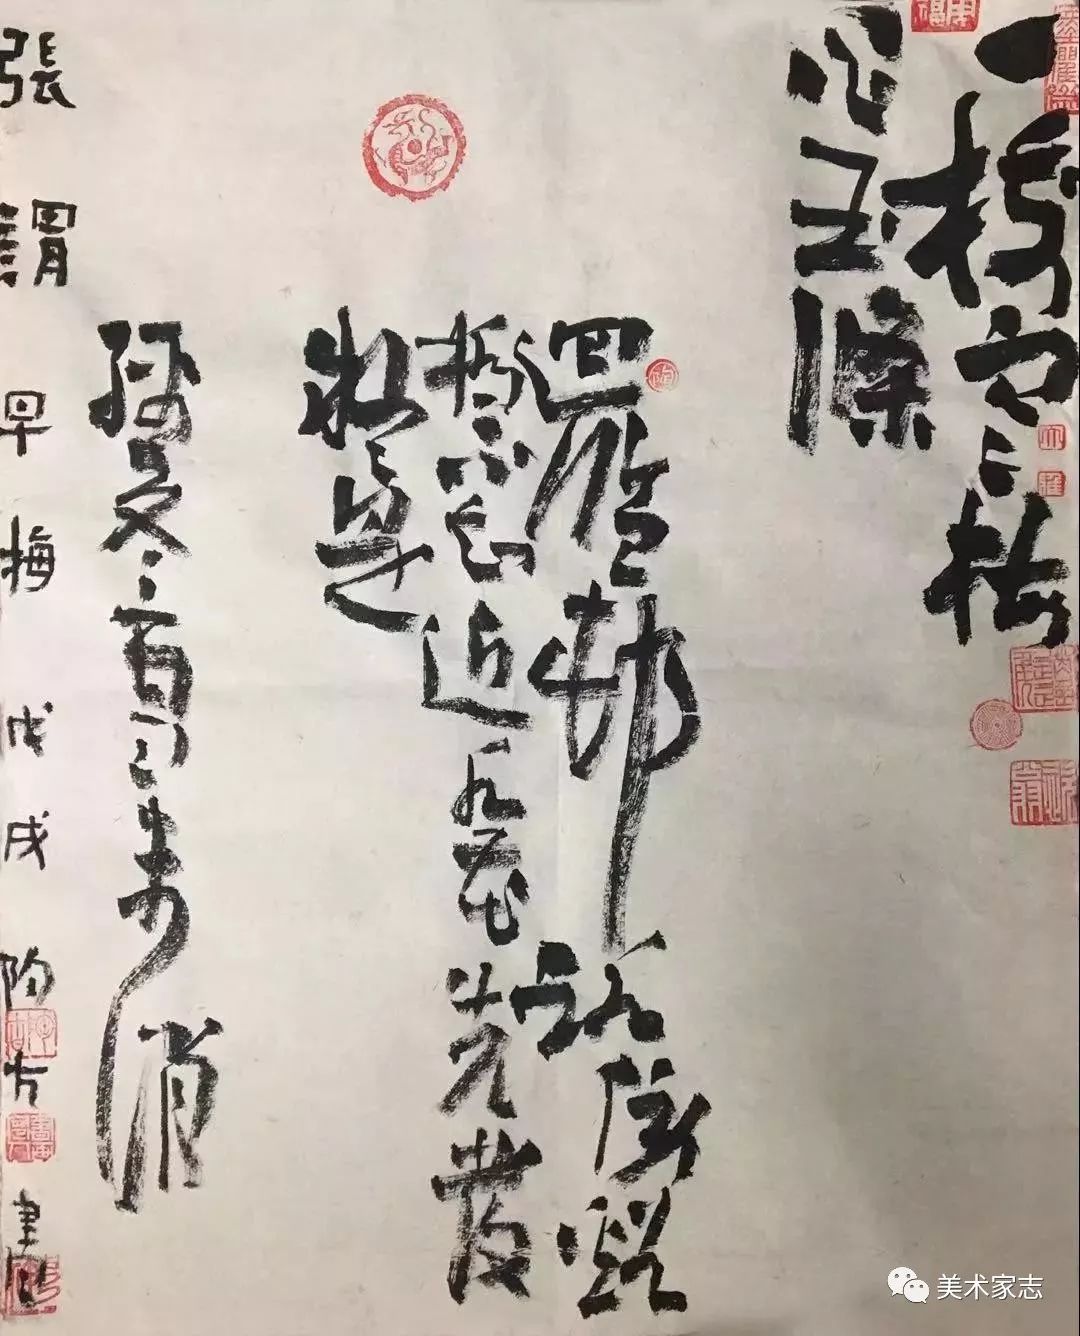 一樹寒梅
白玉條
迥臨邨路傍谿
橋不知近水花先發
疑是
經冬雪未消
張謂早梅 戊戌 陶
美术家志